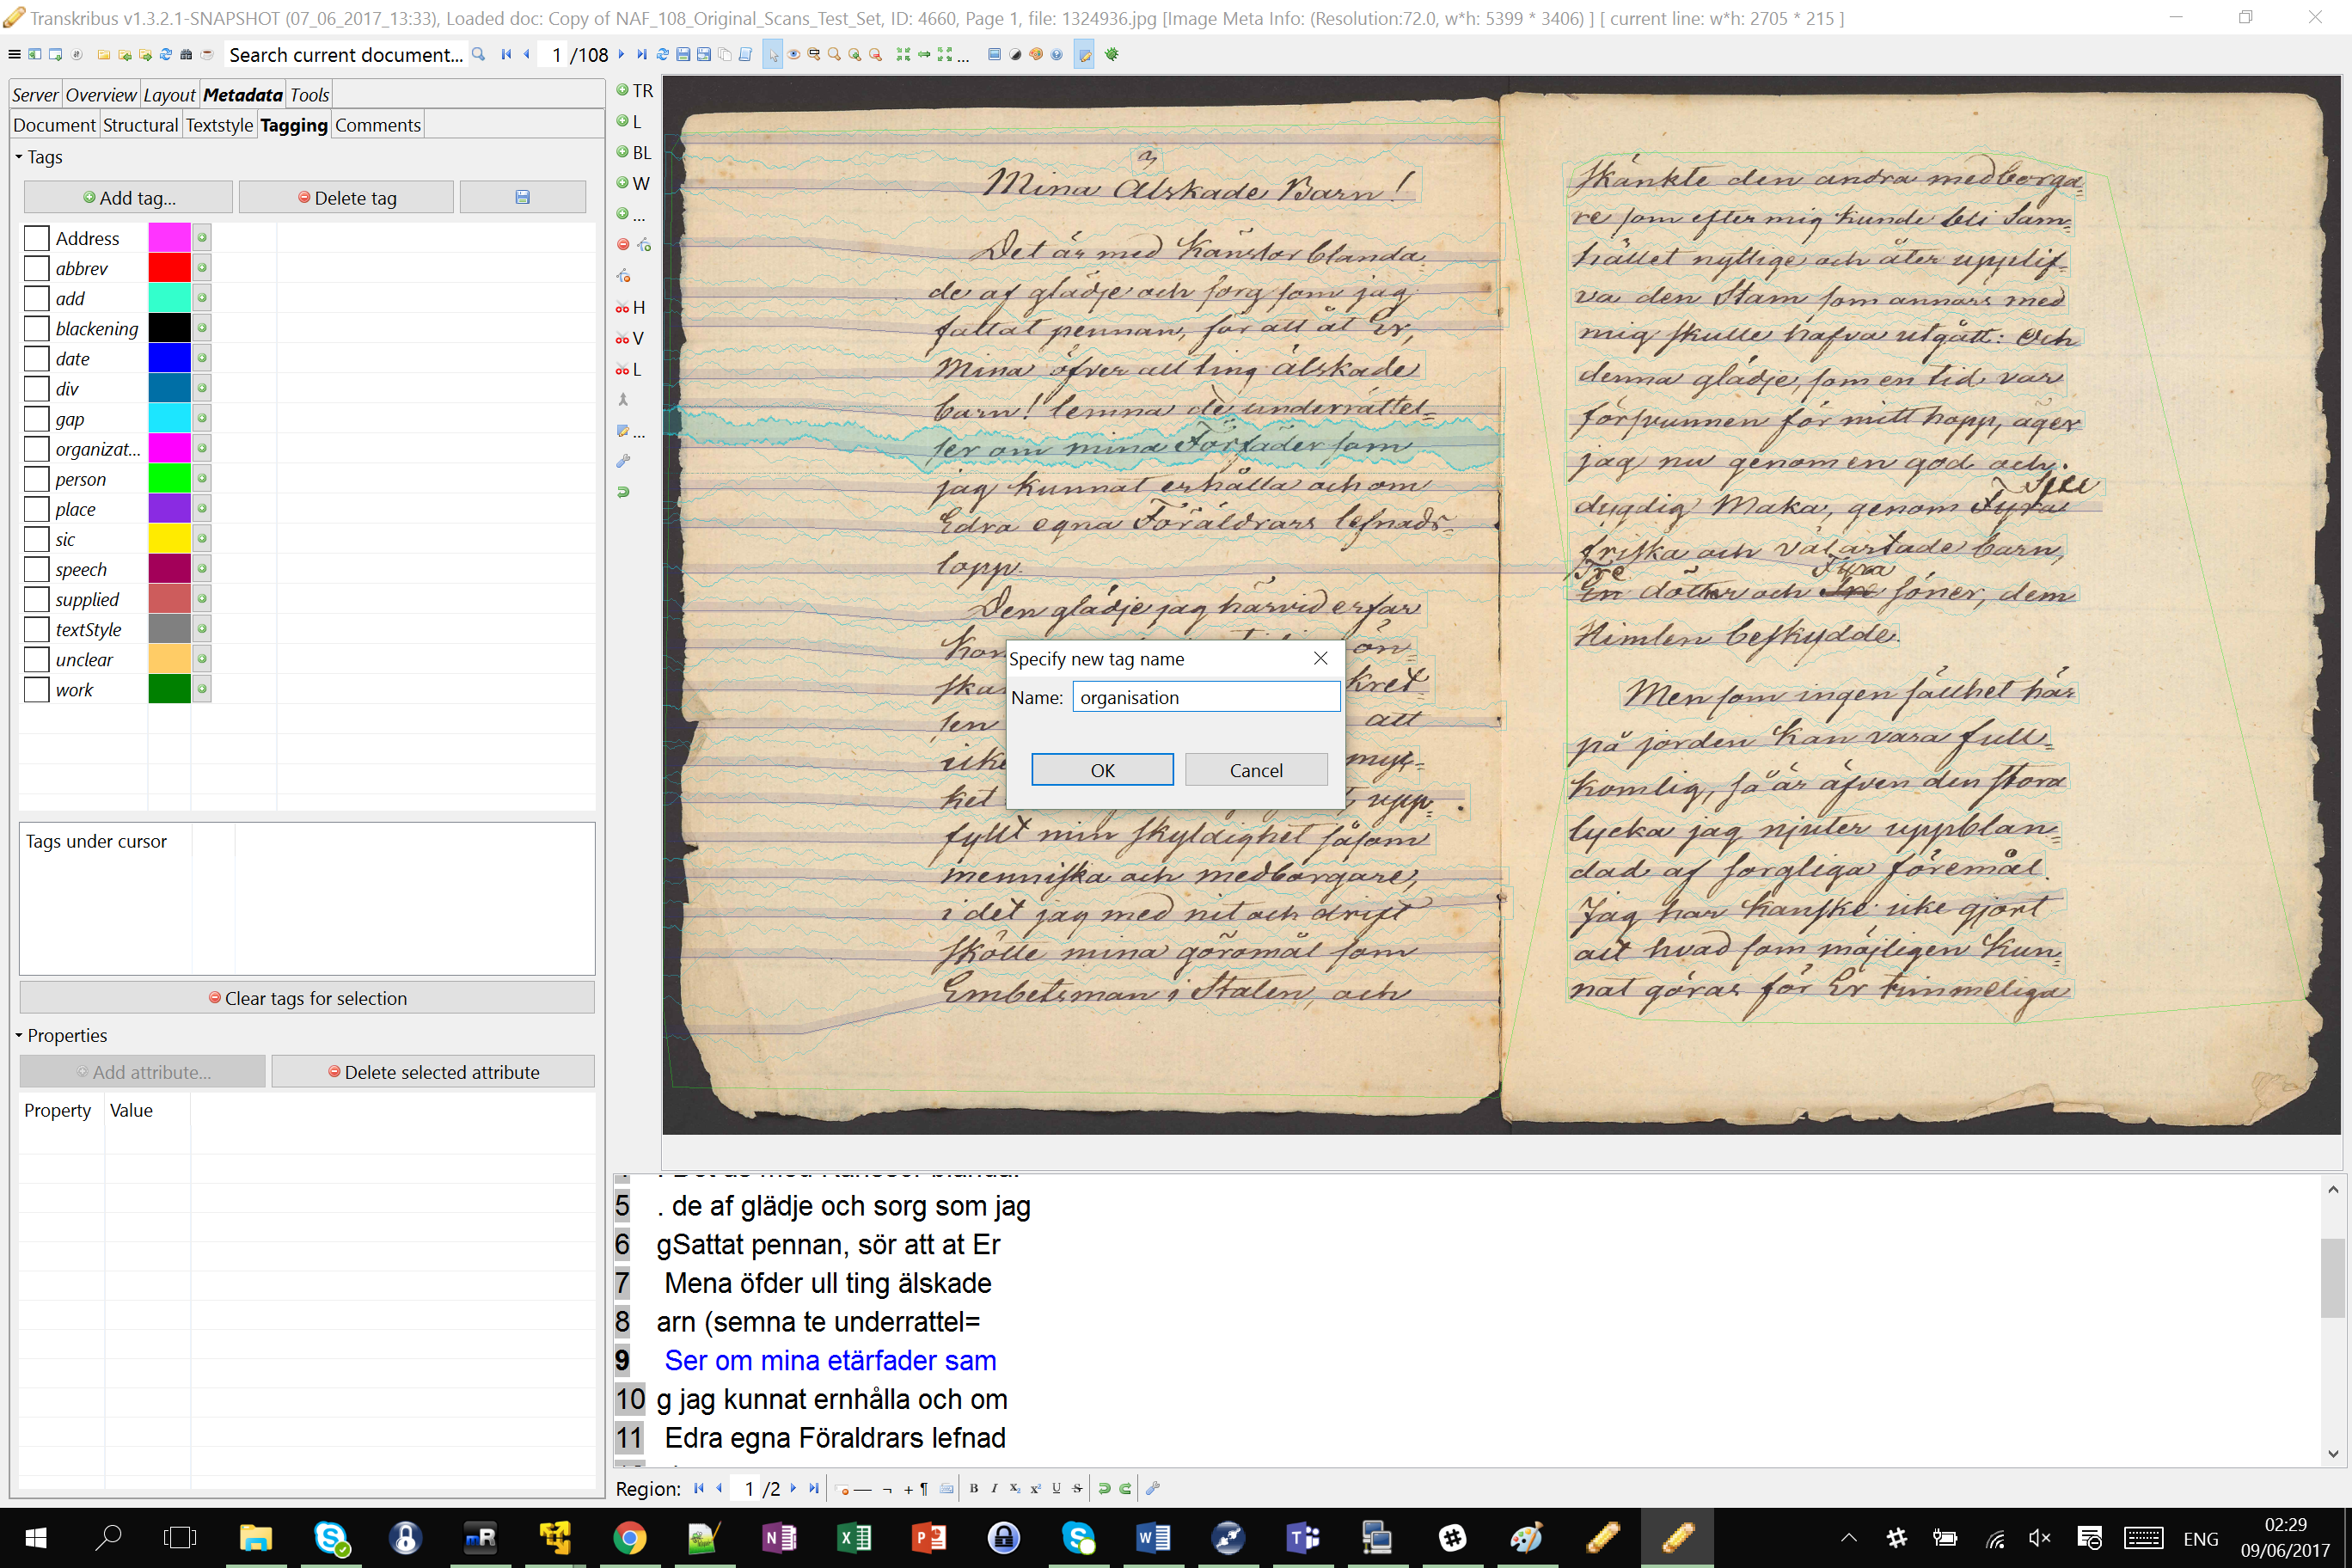 Transkribus v1.3.2.1-SNAPSHOT (07_06_2017_13:33), Loaded doc: Copy of NAF_108_Original_Scans_Test_Set, ID: 4660, Page 1, file: 1324936.jpg [Image Meta Info: (Resolution:72.0, w*h: 5399 * 3406) ] [ current line: w*h: 2705 * 215 ]
Search current document... 1 /108 ...
Server Overview Layout Metadata Tools
Document Structural Textstyle Tagging Comments
Tags
Add tag... Delete tag
Address
abbrev
add
blackening
date
div
gap
organizat...
person
place
sic
speech
supplied
textStyle
unclear
work
Tags under cursor
Clear tags for selection
Properties
Add attribute... Delete selected attribute
Property Value
TR
L
BL
W
...
H
V
L
...
Mina Älskade Barn!
Det är med Känslor blanda
de af glädje och sorg som jag
fattat pennan, för att åt Er,
Mina öfver all ting älskade
barn! lemna de underrättel=
ser om mina Förfäder som
jag kunnat erhålla och om
Edra egna Föräldrars lefnads=
lopp.
Den glädje jag härvid erfar
kon
ön=
ska
kret
sen
att
icke
myc=
ket
upp=
fyllt min skyldighet såsom
menniska och medborgare,
i det jag med nit och drift
skötte mina göromål som
Embetsman i Staten, och
skänkte den andra medborga
re som efter mig kunde bli Sam=
hället nyttige och åter upplif=
va den Stam som annars med
mig skulle hafva utgått: Och
denna glädje, som en tid var
försvunnen för mitt hopp, äger
jag nu genom en god och
dygdig Maka, genom Fyra
friska och välartade barn,
Tre Fyra
En döttrar och söner, dem
Himlen beskydde.
Men som ingen sällhet här
på jorden kan vara full=
komlig, så är äfven den stora
lycka jag njuter uppblan=
dad af sorgliga föremål.
Jag har kanske icke gjort
allt hvad som möjligen kun=
nat göras för Er timmeliga
Specify new tag name
Name: organisation
OK Cancel
5 . de af glädje och sorg som jag
6 gSattat pennan, sör att at Er
7 Mena öfder ull ting älskade
8 arn (semna te underrattel=
9 Ser om mina etärfader sam
10 g jag kunnat ernhålla och om
11 Edra egna Föraldrars lefnad
Region: 1 /2
ENG
02:29
09/06/2017